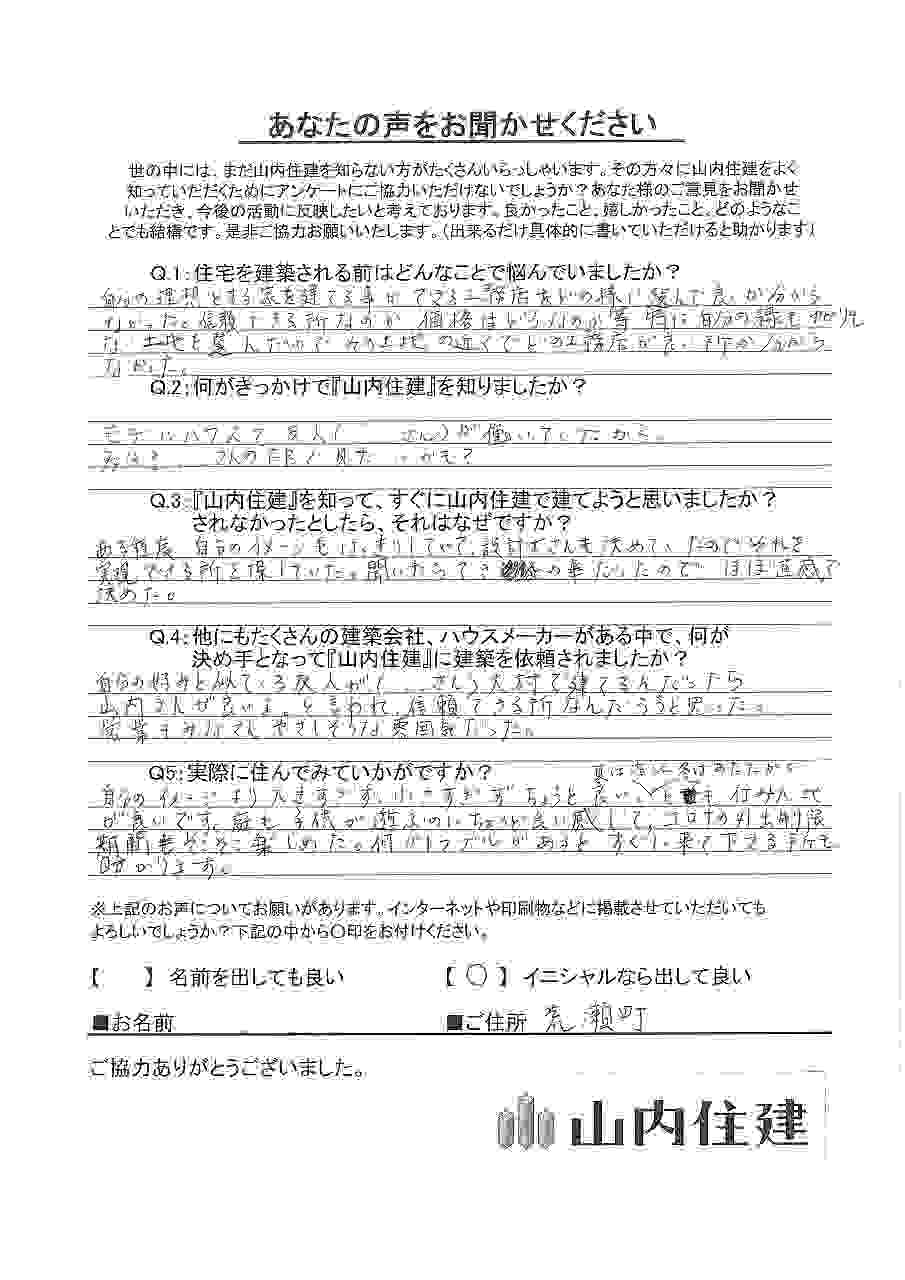 あなたの声をお聞かせください
世の中には、まだ山内住建を知らない方がたくさんいらっしゃいます。その方々に山内住建をよく
知っていだだくためにアンケートにご協力いただけないでしょうか？あなた様のご意見をお聞かせ
いただき、今後の活動に反映したいと考えております。良かったこと、嬉しかったこと。どのようなこ
とでも結構です。是非ご協力お願いいたします。（出来るだけ具体的に書いていただけると助かります）
Q.1：住宅を建築される前はどんなことで悩んでいましたか？
自分の理想とする家を建てる事ができる工務店をどの様に選んで良いか分から
なかった。信頼できる所なのか 価格はどうなのか等 特に自分の縁も
な 土地を選んだので その土地の近くでどの工務店が良い所か分から
なかった。
Q.2：何がきっかけで『山内住建』を知りましたか？
モデルハウスで 友人（ さん）が働いていたから。
さんの 見た かも？
Q.3：『山内住建』を知って、すぐに山内住建で建てようと思いましたか？
されなかったとしたら、それはなぜですか？
ある程度 自分のイメージもはっきりしていて、設計士さんも決めていたので それを
実現できる所を探していた。聞いたら の事だったので ほぼ直感で
決めた。
Q.4：他にもたくさんの建築会社、ハウスメーカーがある中で、何が
決め手となって『山内住建』に建築を依頼されましたか？
自分の好みと似ている友人が（ さん）大村で建てるんだったら
山内さんが良いよ。と言われ、信頼できる所なんだろうと思った。
営業もみなさんやさしそうな雰囲気だった。
Q5：実際に住んでみていかがですか？
夏は涼しく冬はあたたかく
自分のイメージより大きすぎず、小さすぎずちょうど良い、 も
が良いです。庭も子供が遊ぶのにちょうど良い感じで、コロナの外出制限
期間もそこそこ楽しめた。何かトラブルがあると すぐに来て下さる所も
助かります。
※上記のお声についてお願いがあります。インターネットや印刷物などに掲載させていただいても
よろしいでしょうか？下記の中から〇印をお付けください。
【 】 名前を出しても良い 【 〇 】 イニシャルなら出して良い
■お名前 ■ご住所 荒瀬町
ご協力ありがとうございました。
山内住建